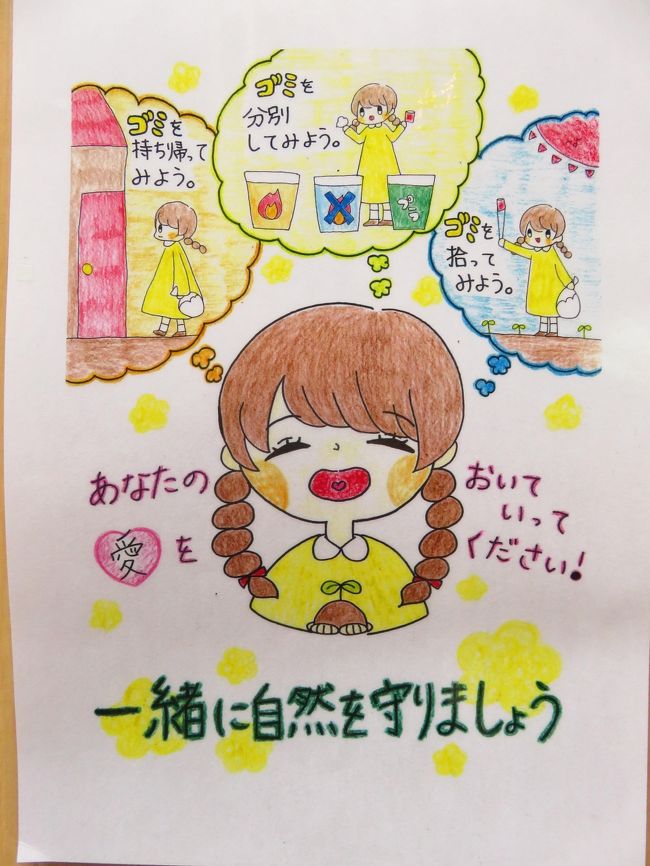 ゴミを
持ち帰って
みよう。
ゴミを
分別
してみよう。
プラ
ゴミを
拾って
みよう。
あなたの
愛を
おいて
いって
ください!
一緒に自然を守りましょう